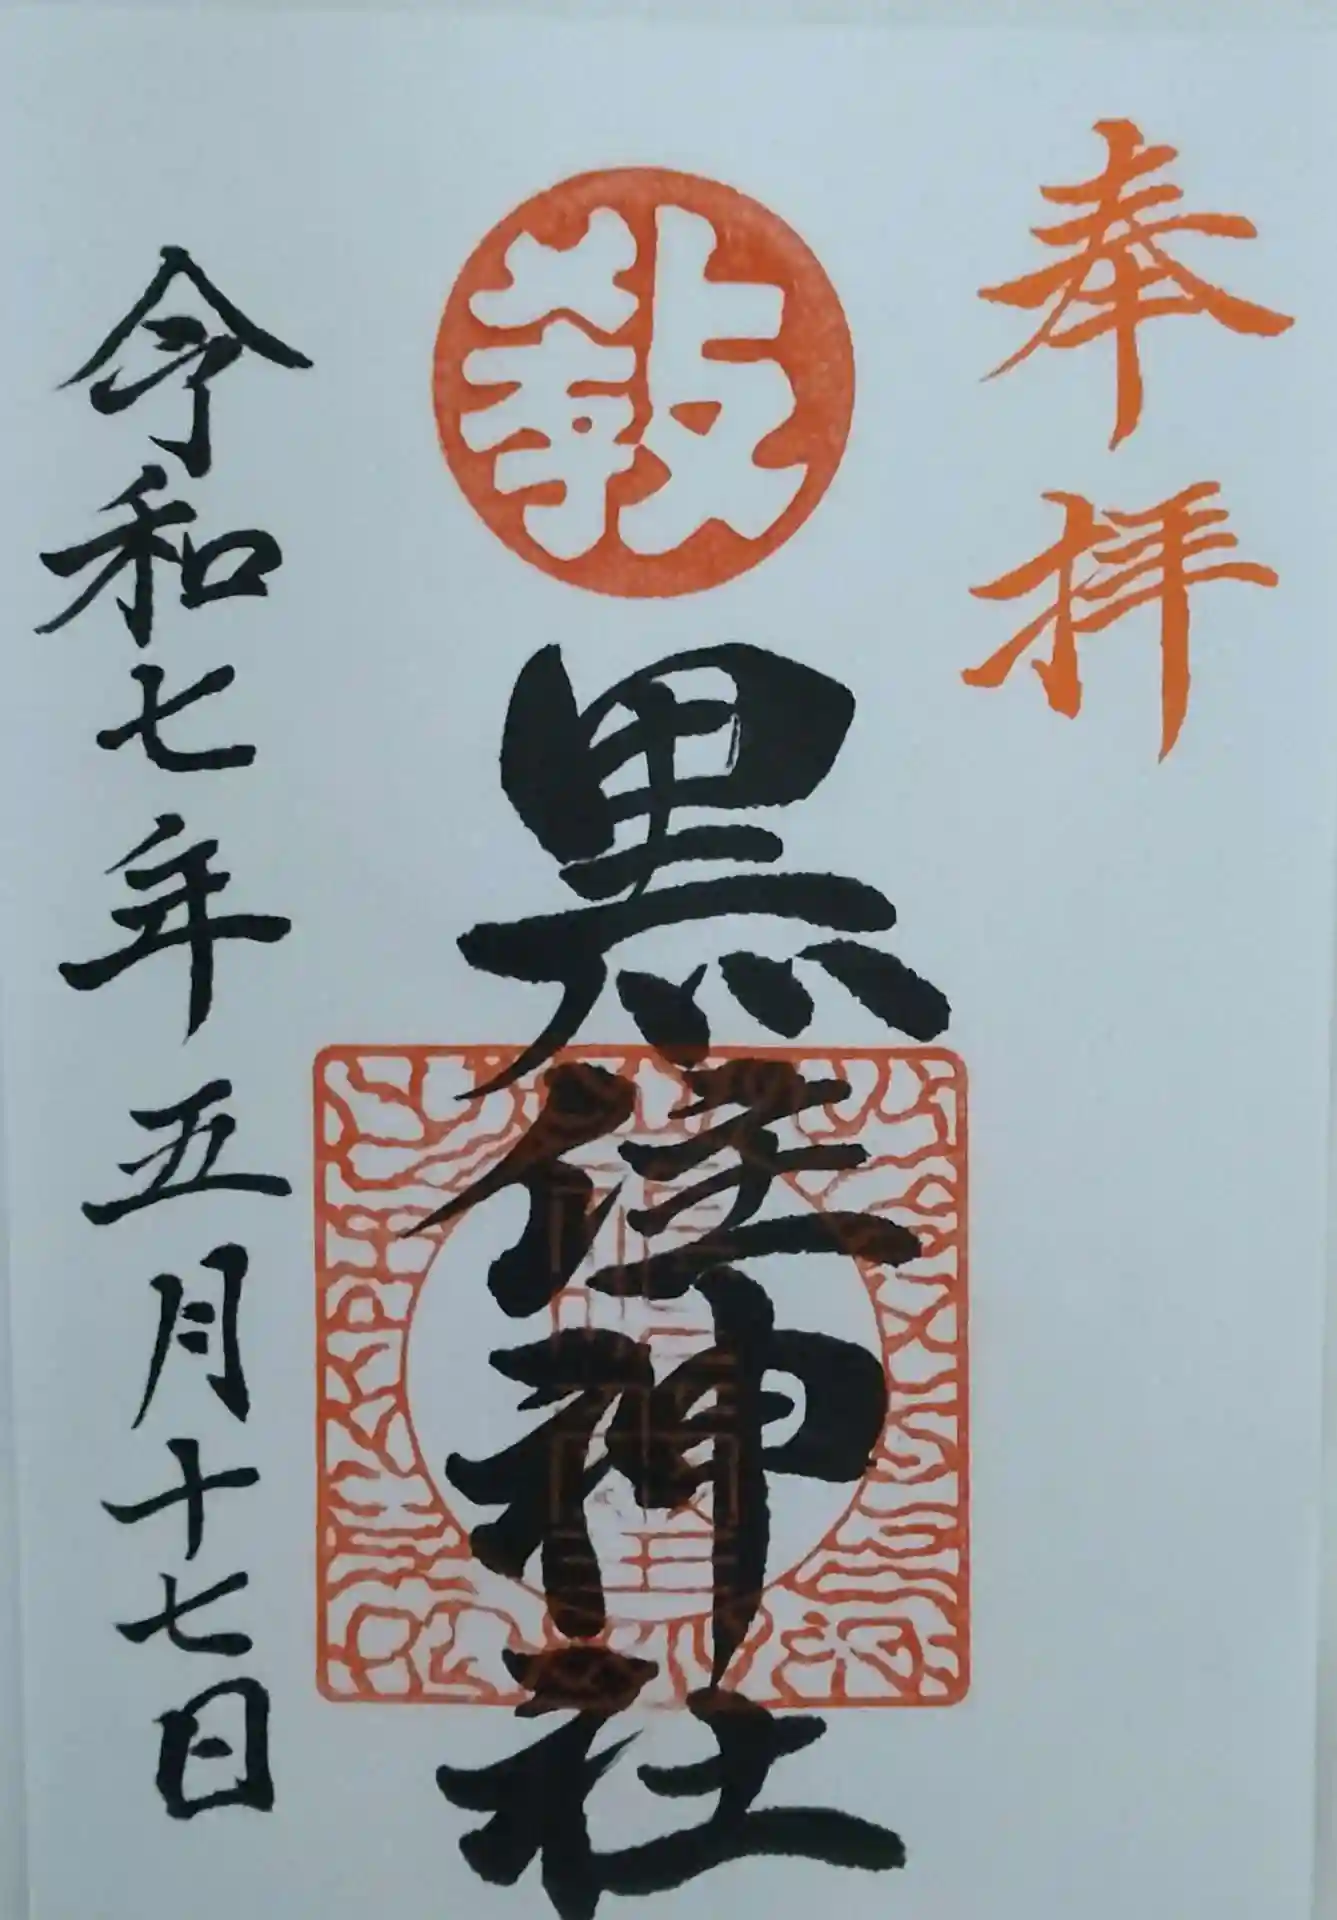 奉拝
教
黒住神社
令和七年五月十七日